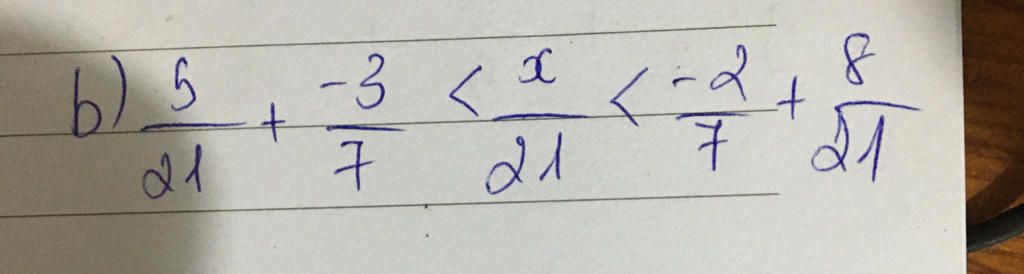 b) 5/21 + -3/7 < x/21 < -2/7 + 8/21